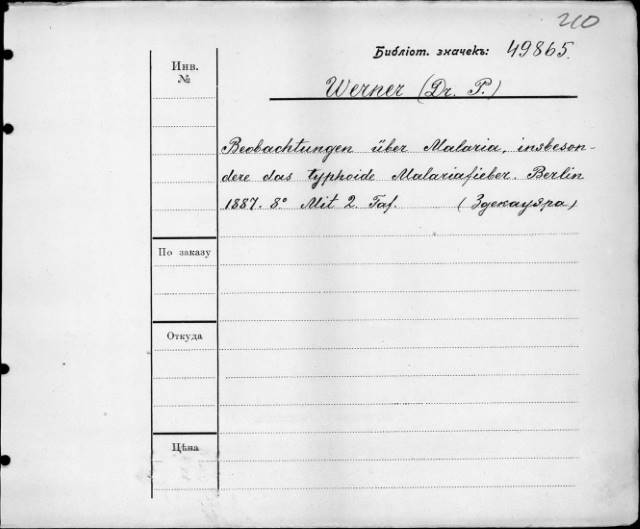 210
Библіот. значекъ: 49865.
Инв.
№
Werner (Dr. P.)
Beobachtungen über Malaria, insbeson-
dere das typhoide Malariafieber. Berlin
1887. 8.° Mit 2 Taf. (Здекауэра)
По заказу
Откуда
Цѣна